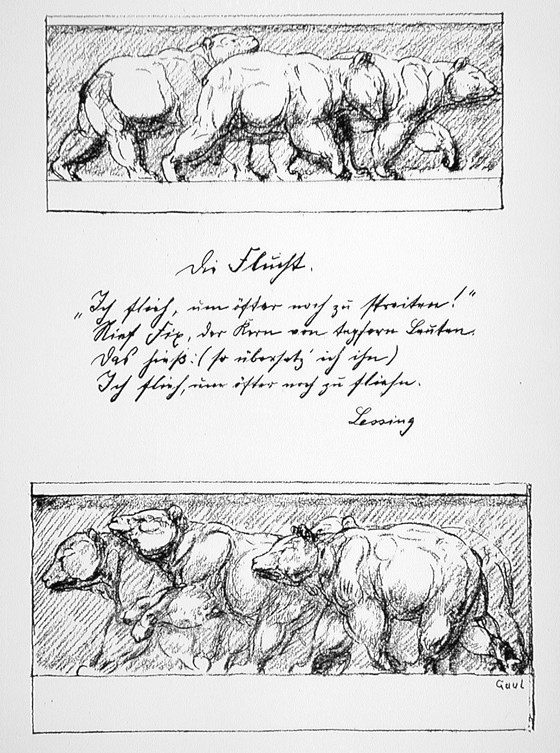 Die Flucht.
„Ich flieh, um öfter noch zu streiten!"
Rief Fix, der Kern von tapfern Leuten.
Das hieß: (so übersetz' ich ihn)
Ich flieh, um öfter noch zu fliehn.
Lessing
Gaul